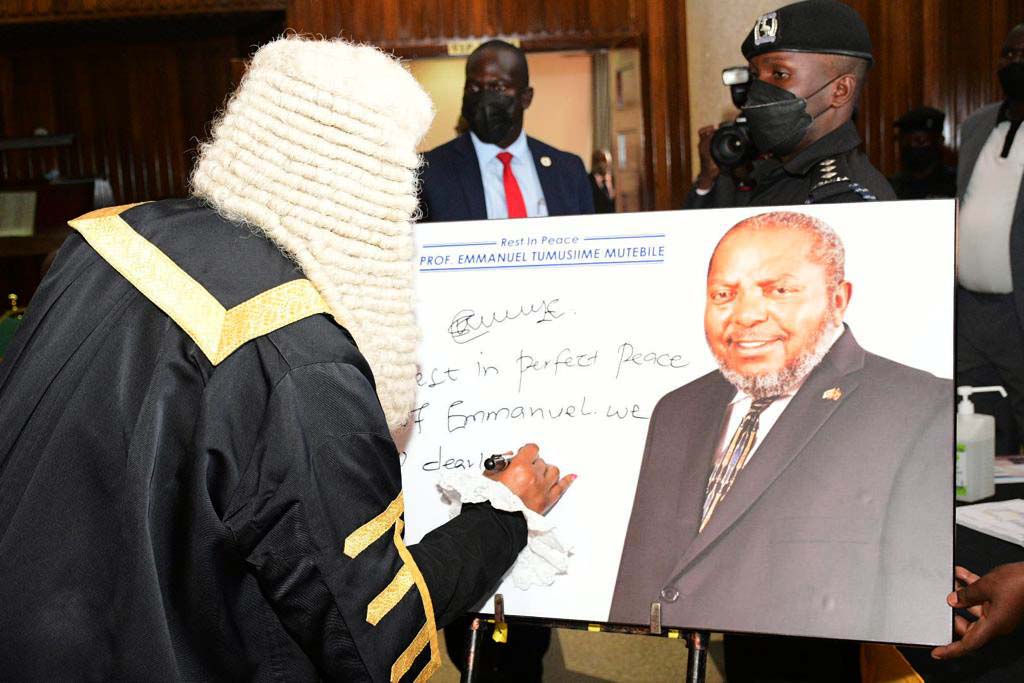 Rest In Peace
PROF. EMMANUEL TUMUSIIME MUTEBILE
est in perfect Peace
f Emmanuel. we
dearl